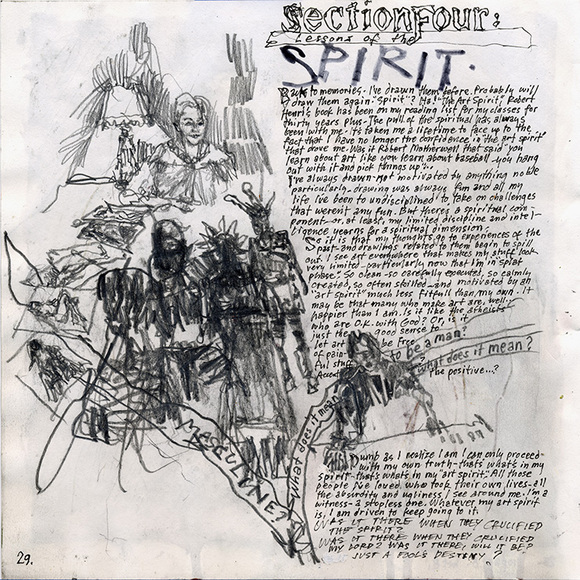 Section Four:
Lessons of the
SPIRIT.
Back to memories. I've drawn them before. Probably will
draw them again. "Spirit"? Ha! "The Art Spirit," Robert
Henri's book has been on my reading list for my classes for
thirty years plus. The pull of the spiritual has always
been with me. It's taken me a lifetime to face up to the
fact that I have no longer the confidence in the art spirit
that drove me. Was it Robert Motherwell that said "you
learn about art like you learn about baseball - you hang
out with it and pick things up"...
I've always drawn - not motivated by anything noble
particularly - drawing was always fun and all my
life I've been to undisciplined to take on challenges
that weren't any fun. But there's a spiritual com-
ponent - or at least my limited discipline and intel-
ligence yearns for a spiritual dimension.
So it is that my thoughts go to experiences of the
past - and drawings related to them begin to spill
out. I see art everywhere that makes my stuff look
very limited - particularly now that I'm in "splat
phase." So clean - so carefully executed, so calmly
created, so often skilled - and motivated by an
"art spirit" much less fitful than my own. It
may be that many who make art are, well,
happier than I am. Is it like the atheists
who are O.K. with God? Or, is it
just the good sense to
let art be free
of pain-
ful stuff?
Accent the positive...?
to be a man?
what does it mean?
what does it mean
MASCULINE?
Dumb as I realize I am I can only proceed
with my own truth - that's what's in my
spirit - that's what's in my "art spirit." All those
people I've loved who took their own lives - all
the absurdity and ugliness I see around me. I'm a
witness - a stopless one. Whatever my art spirit
is, I am driven to keep going to it.
WAS IT THERE WHEN THEY CRUCIFIED
THE SPIRIT?
WAS IT THERE WHEN THEY CRUCIFIED
MY LORD? WAS IT THERE, WILL IT BE?
JUST A FOOL'S DESTINY?
29.